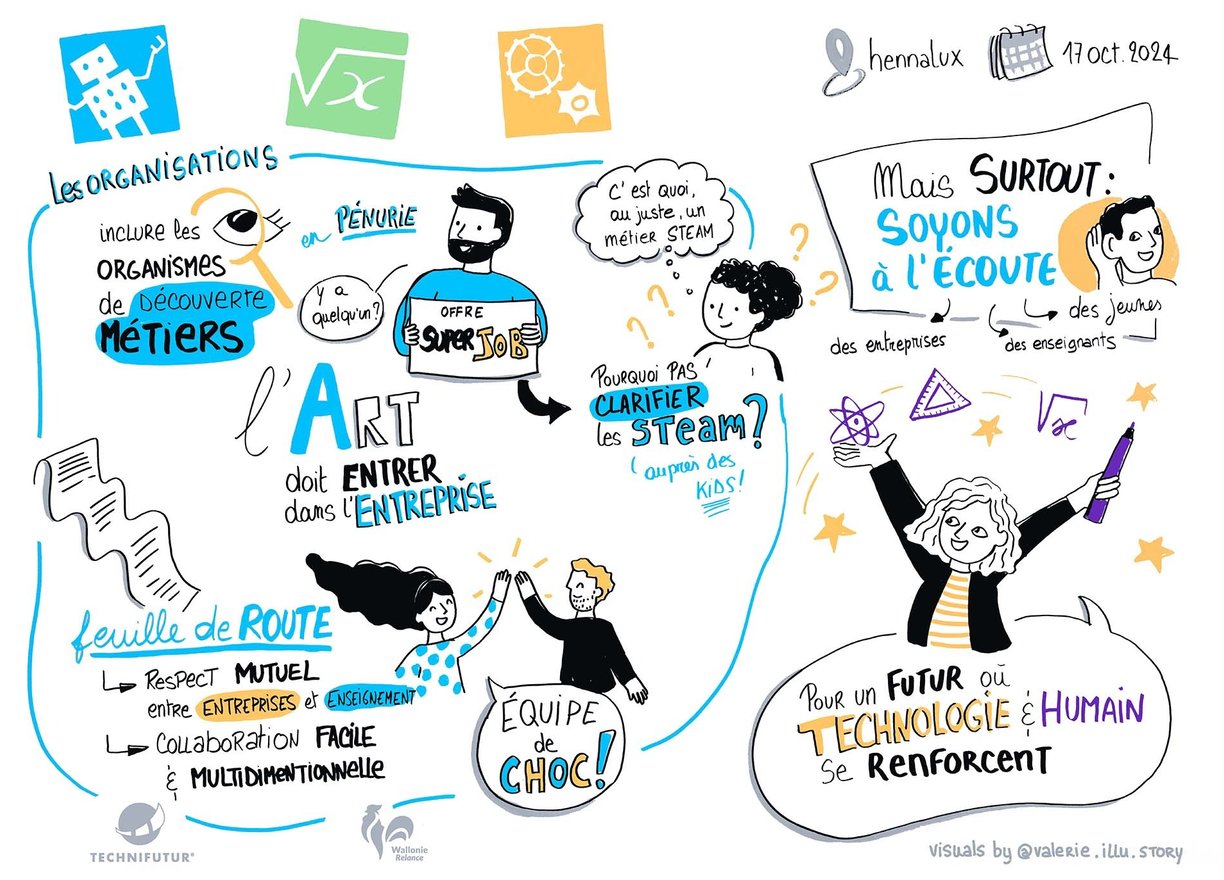 √x
hennalux
17 oct. 2024
Les ORGANISATIONS
INCLURE les
ORGANISMES
de DÉCOUVERTE
MÉTIERS
en PÉNURIE
Y a
quelqu'un?
OFFRE
SUPER JOB
C'est quoi,
au juste, un
métier STEAM
POURQUOI PAS
CLARIFIER
les STeam?
(auprès des
KIDS!
l'ART
doit ENTRER
dans l'ENTREPRISE
feuille de ROUTE
RESPECT MUTUEL
entre ENTREPRISES et ENSEIGNEMENT
COLLABORATION FACILE
& MULTIDIMENTIONNELLE
ÉQUIPE
de
CHOC!
Mais SURTOUT:
SOYONS
à l'ÉCOUTE
des jeunes
des entreprises
des enseignants
√x
POUR UN FUTUR OÙ
TECHNOLOGIE & HUMAIN
se RENFORCENT
TECHNIFUTUR®
Wallonie
Relance
visuals by @valerie.illu.story